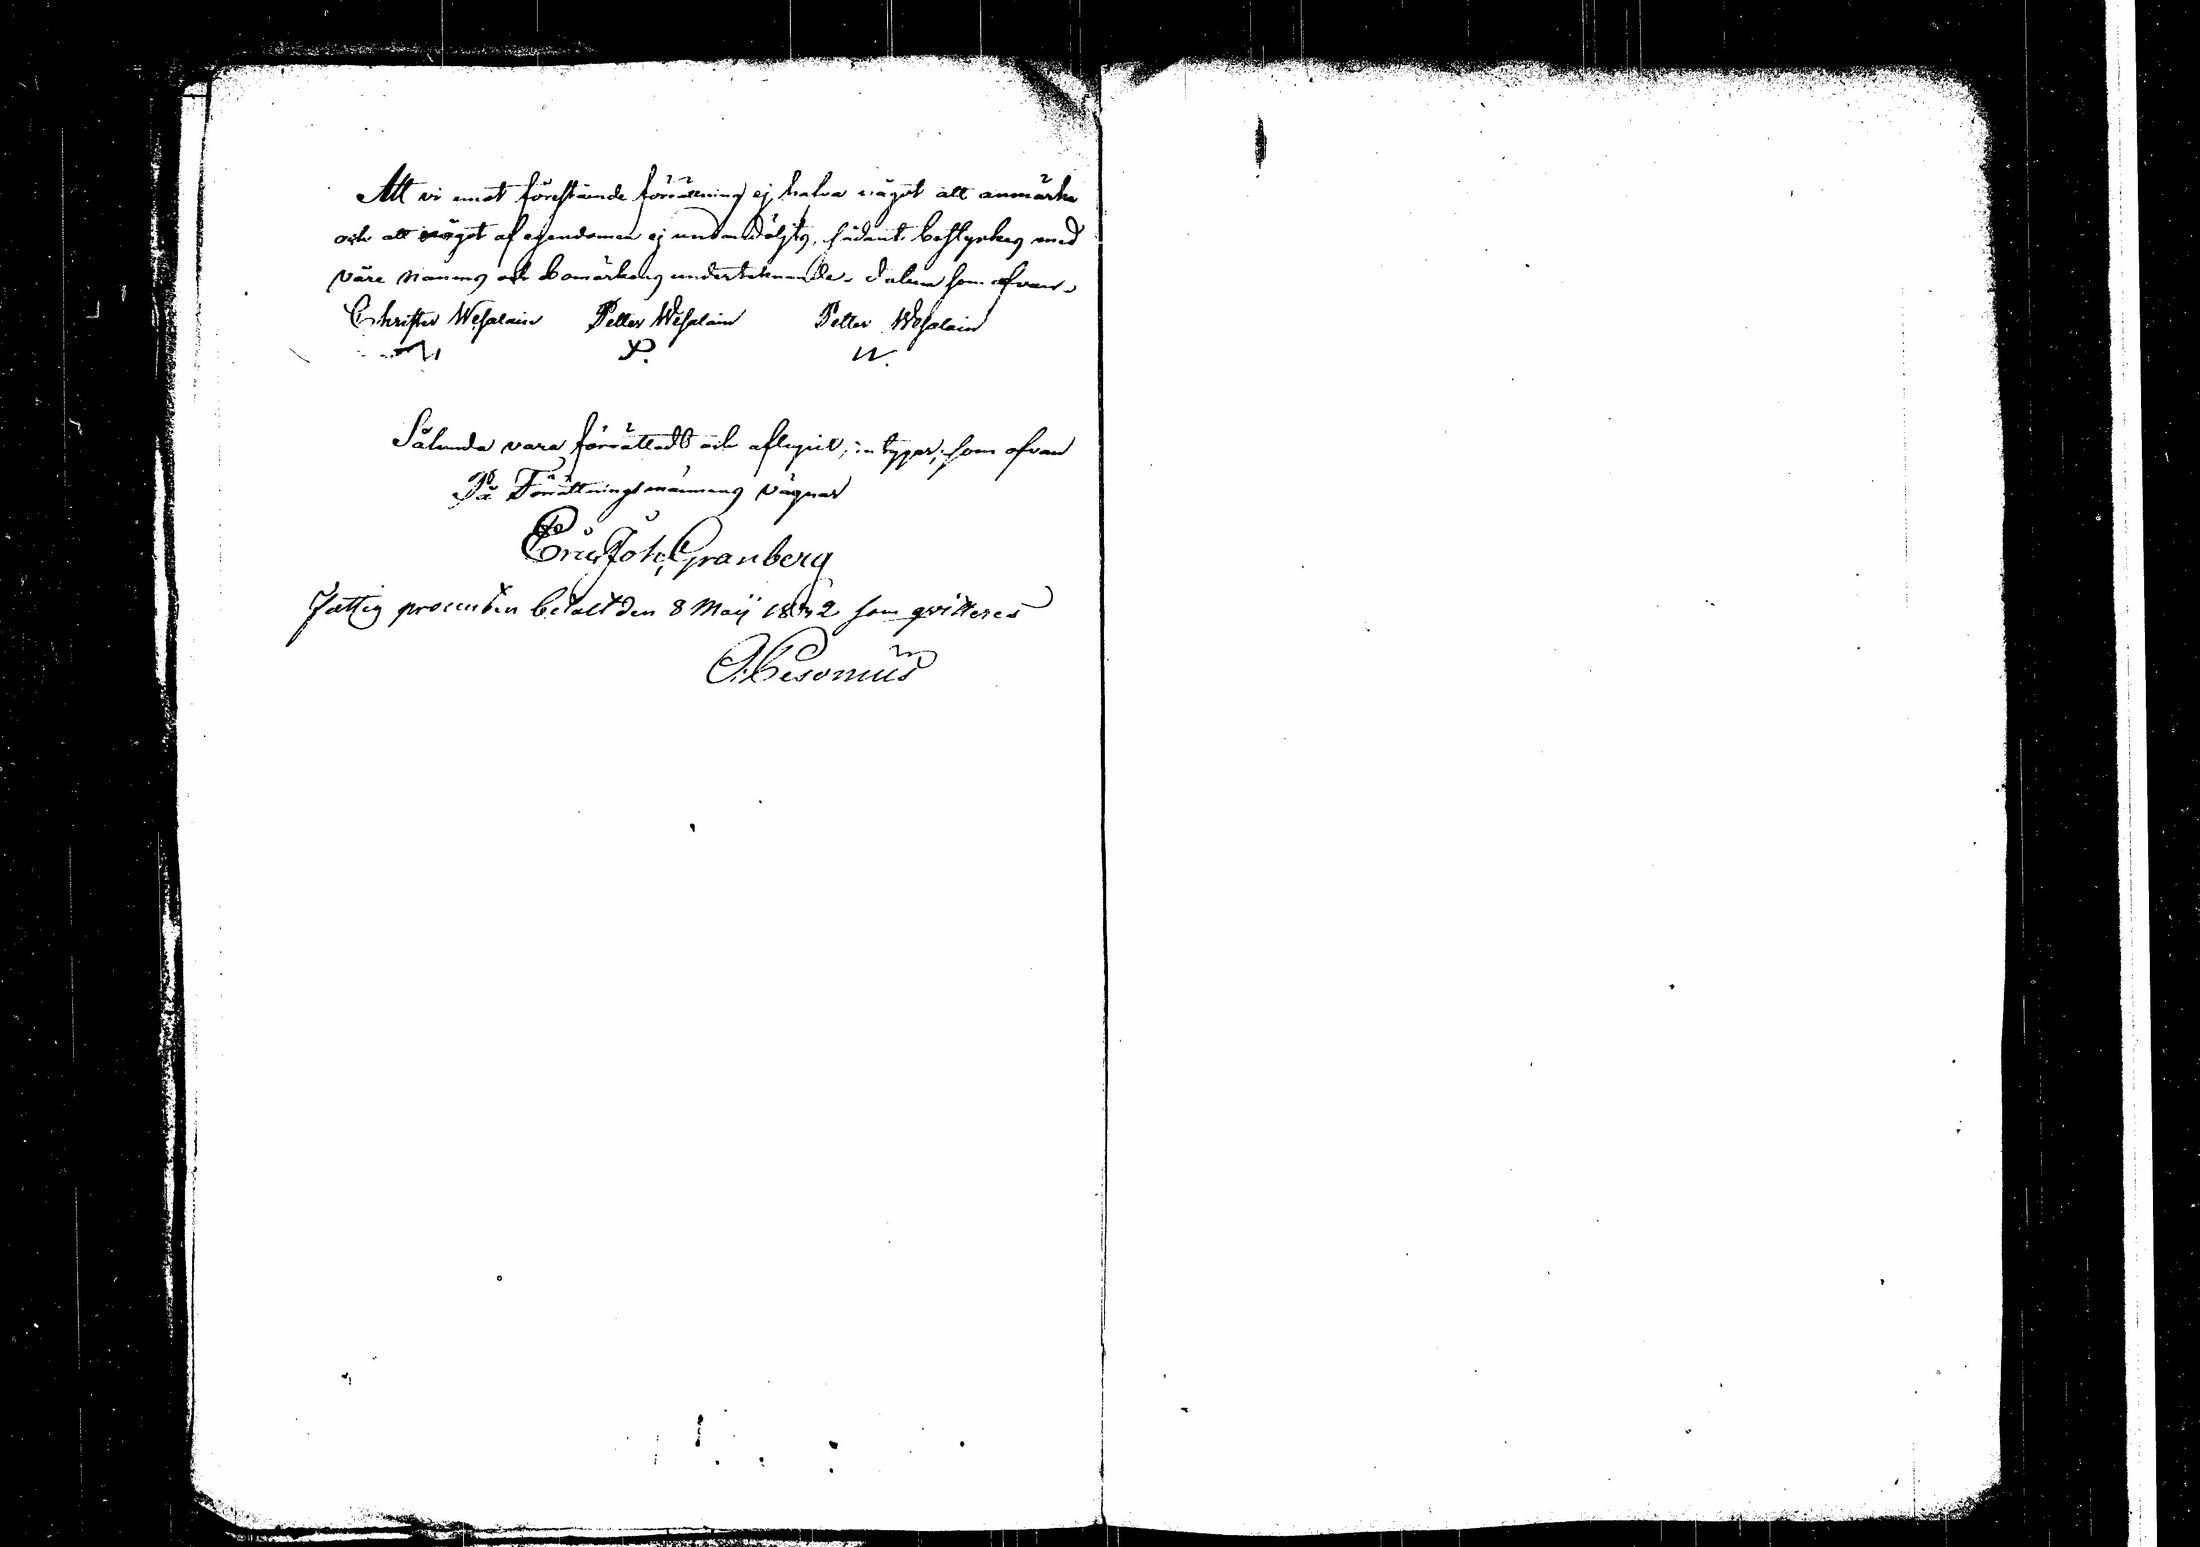 Att vi emot förestående förrättning ej hafva något att anmärka
och att något af egendomen ej undandöljts, sådant bestyrkes med
våre namns och bomärkens undertecknande. Datum som ofvan.
Christer Wesalain Petter Wesalain Petter Wesalain
P. W.
Sålunda vara förrättadt och aflupit, intygar, som ofvan
På Förrättningsmännens vägnar
Eric Joh. Granberg
Fattig procenten betalt den 8 Maij 1842 som qvitteres